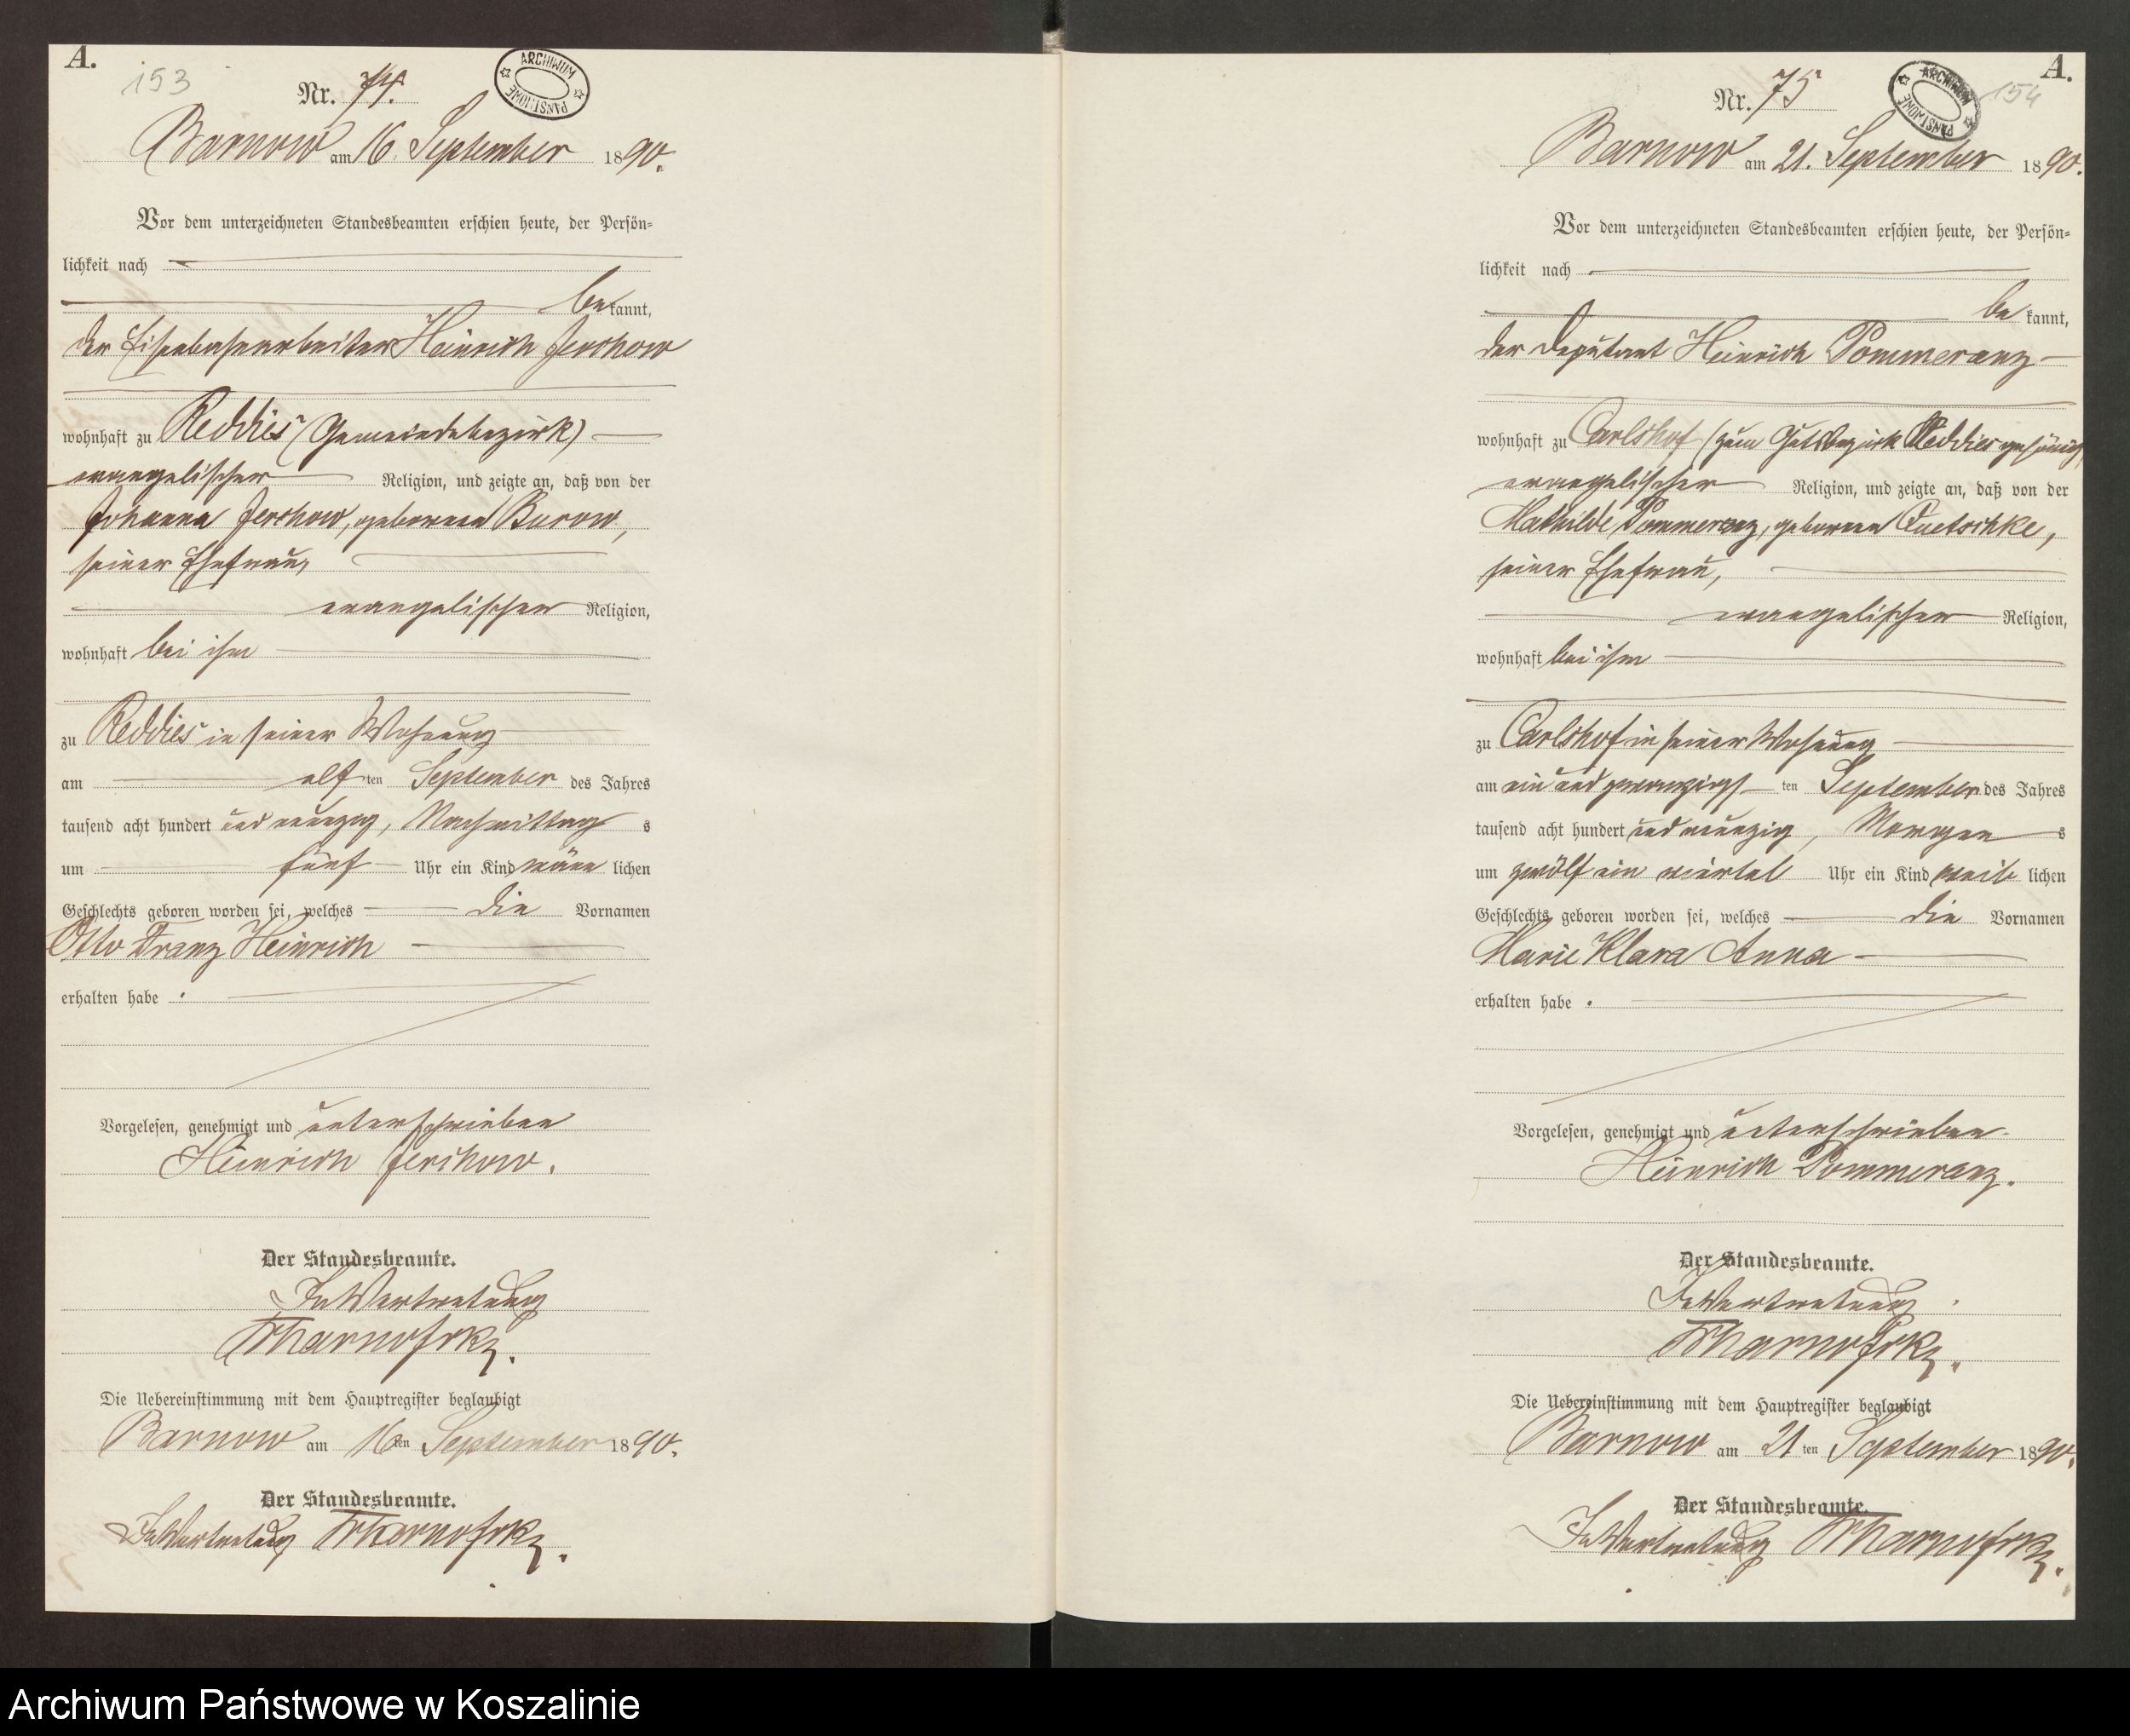 A.
153
Nr. 74.
ARCHIWUM PAŃSTWOWE
Barnow am 16. September 1890.
Vor dem unterzeichneten Standesbeamten erschien heute, der Persön-
lichkeit nach
bekannt,
der Eisenbahnarbeiter Heinrich Jerchow
wohnhaft zu Reddies (Gemeindebezirk)
evangelischer Religion, und zeigte an, daß von der
Johanna Jerchow, geborenen Burow,
seiner Ehefrau,
evangelischer Religion,
wohnhaft bei ihm
zu Reddies in seiner Wohnung
am elf ten September des Jahres
tausend acht hundert und neunzig, Nachmittag s
um fünf Uhr ein Kind männ lichen
Geschlechts geboren worden sei, welches die Vornamen
Otto Franz Heinrich
erhalten habe .
Vorgelesen, genehmigt und unterschrieben
Heinrich Jerchow.
Der Standesbeamte.
In Vertretung
Die Uebereinstimmung mit dem Hauptregister beglaubigt
Barnow am 16 ten September 1890.
Der Standesbeamte.
In Vertretung
A.
154
Nr. 75
ARCHIWUM PAŃSTWOWE
Barnow am 21. September 1890.
Vor dem unterzeichneten Standesbeamten erschien heute, der Persön-
lichkeit nach
be kannt,
der Deputant Heinrich Pommeranz
wohnhaft zu Carlshof (zum Gutsbezirk Reddies gehörig)
evangelischer Religion, und zeigte an, daß von der
Mathilde Pommeranz, geborenen Quetschke,
seiner Ehefrau,
evangelischer Religion,
wohnhaft bei ihm
zu Carlshof in seiner Wohnung
am ein und zwanzigs ten September des Jahres
tausend acht hundert und neunzig, Morgen s
um zwölf ein viertel Uhr ein Kind weib lichen
Geschlechts geboren worden sei, welches die Vornamen
Marie Klara Anna
erhalten habe .
Vorgelesen, genehmigt und unterschrieben
Heinrich Pommeranz.
Der Standesbeamte.
In Vertretung
Die Uebereinstimmung mit dem Hauptregister beglaubigt
Barnow am 21 ten September 1890.
Der Standesbeamte.
In Vertretung
Archiwum Państwowe w Koszalinie